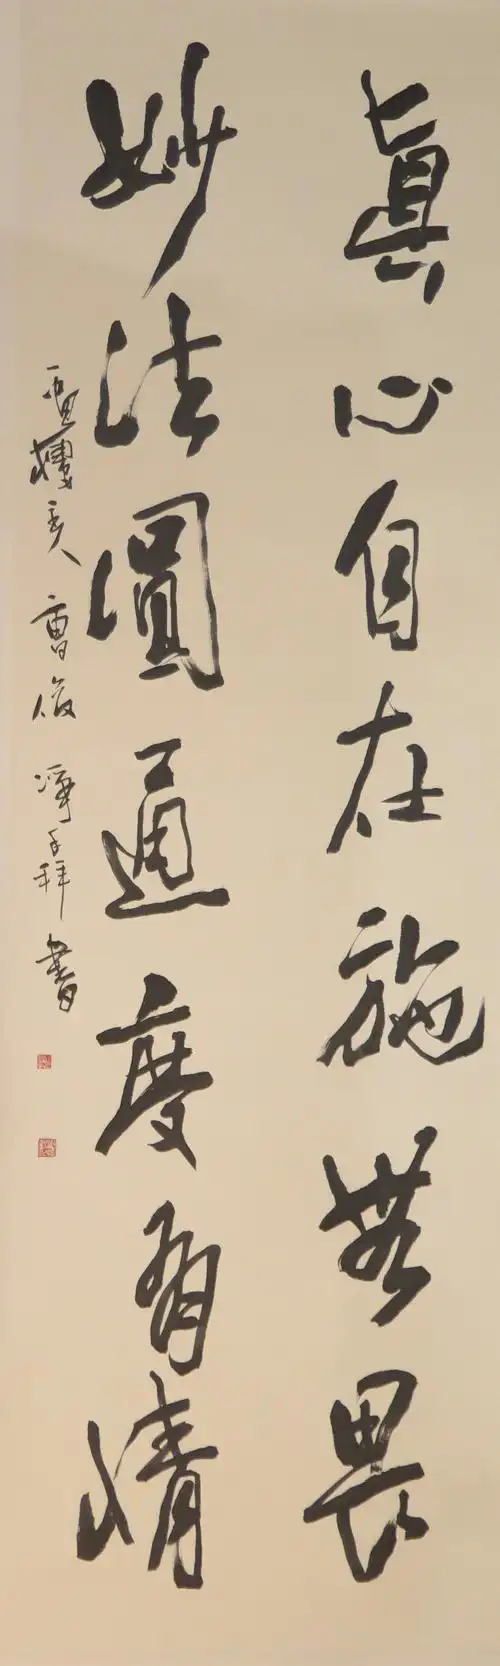 真心自在施無畏
妙法圓通度有情
曹俊淨手拜書